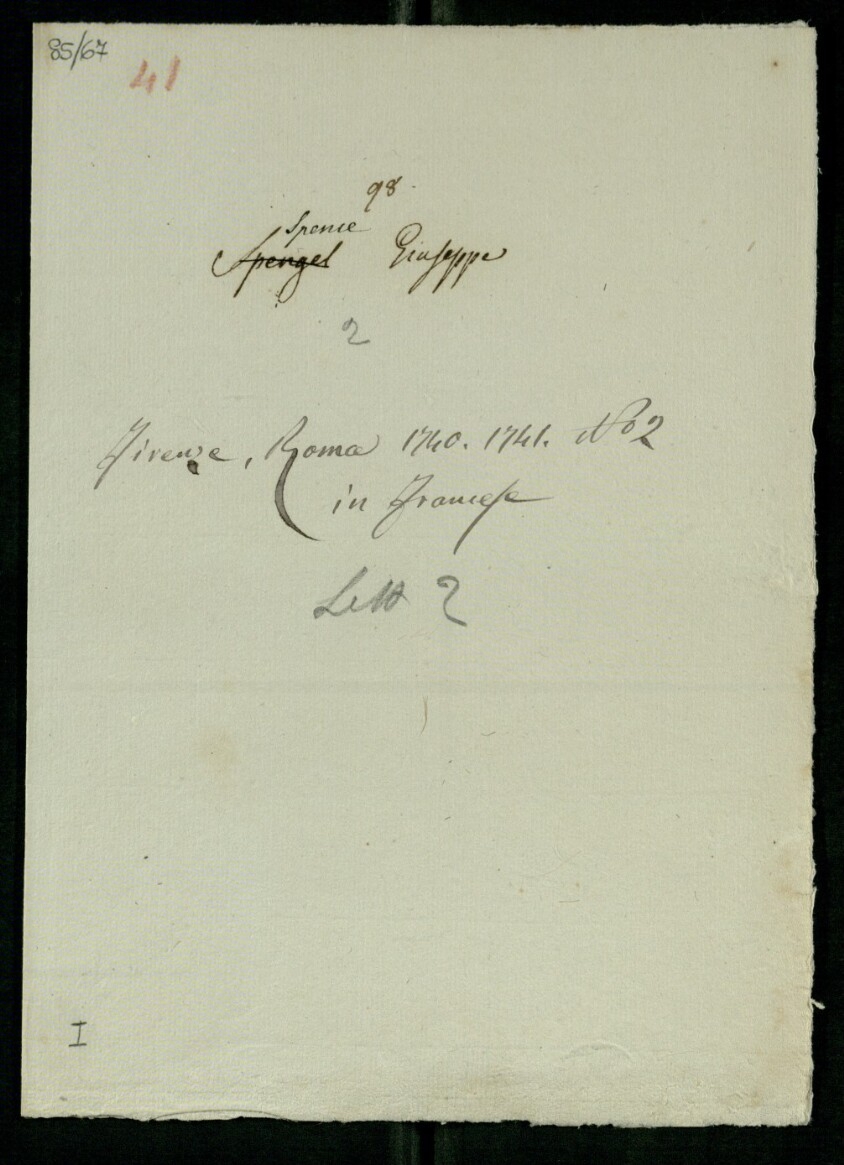 85/67
41
98.
Spence
Spenges Giuseppe
2
Firenze, Roma 1740. 1741. No 2
in Francese
Lett 2
I